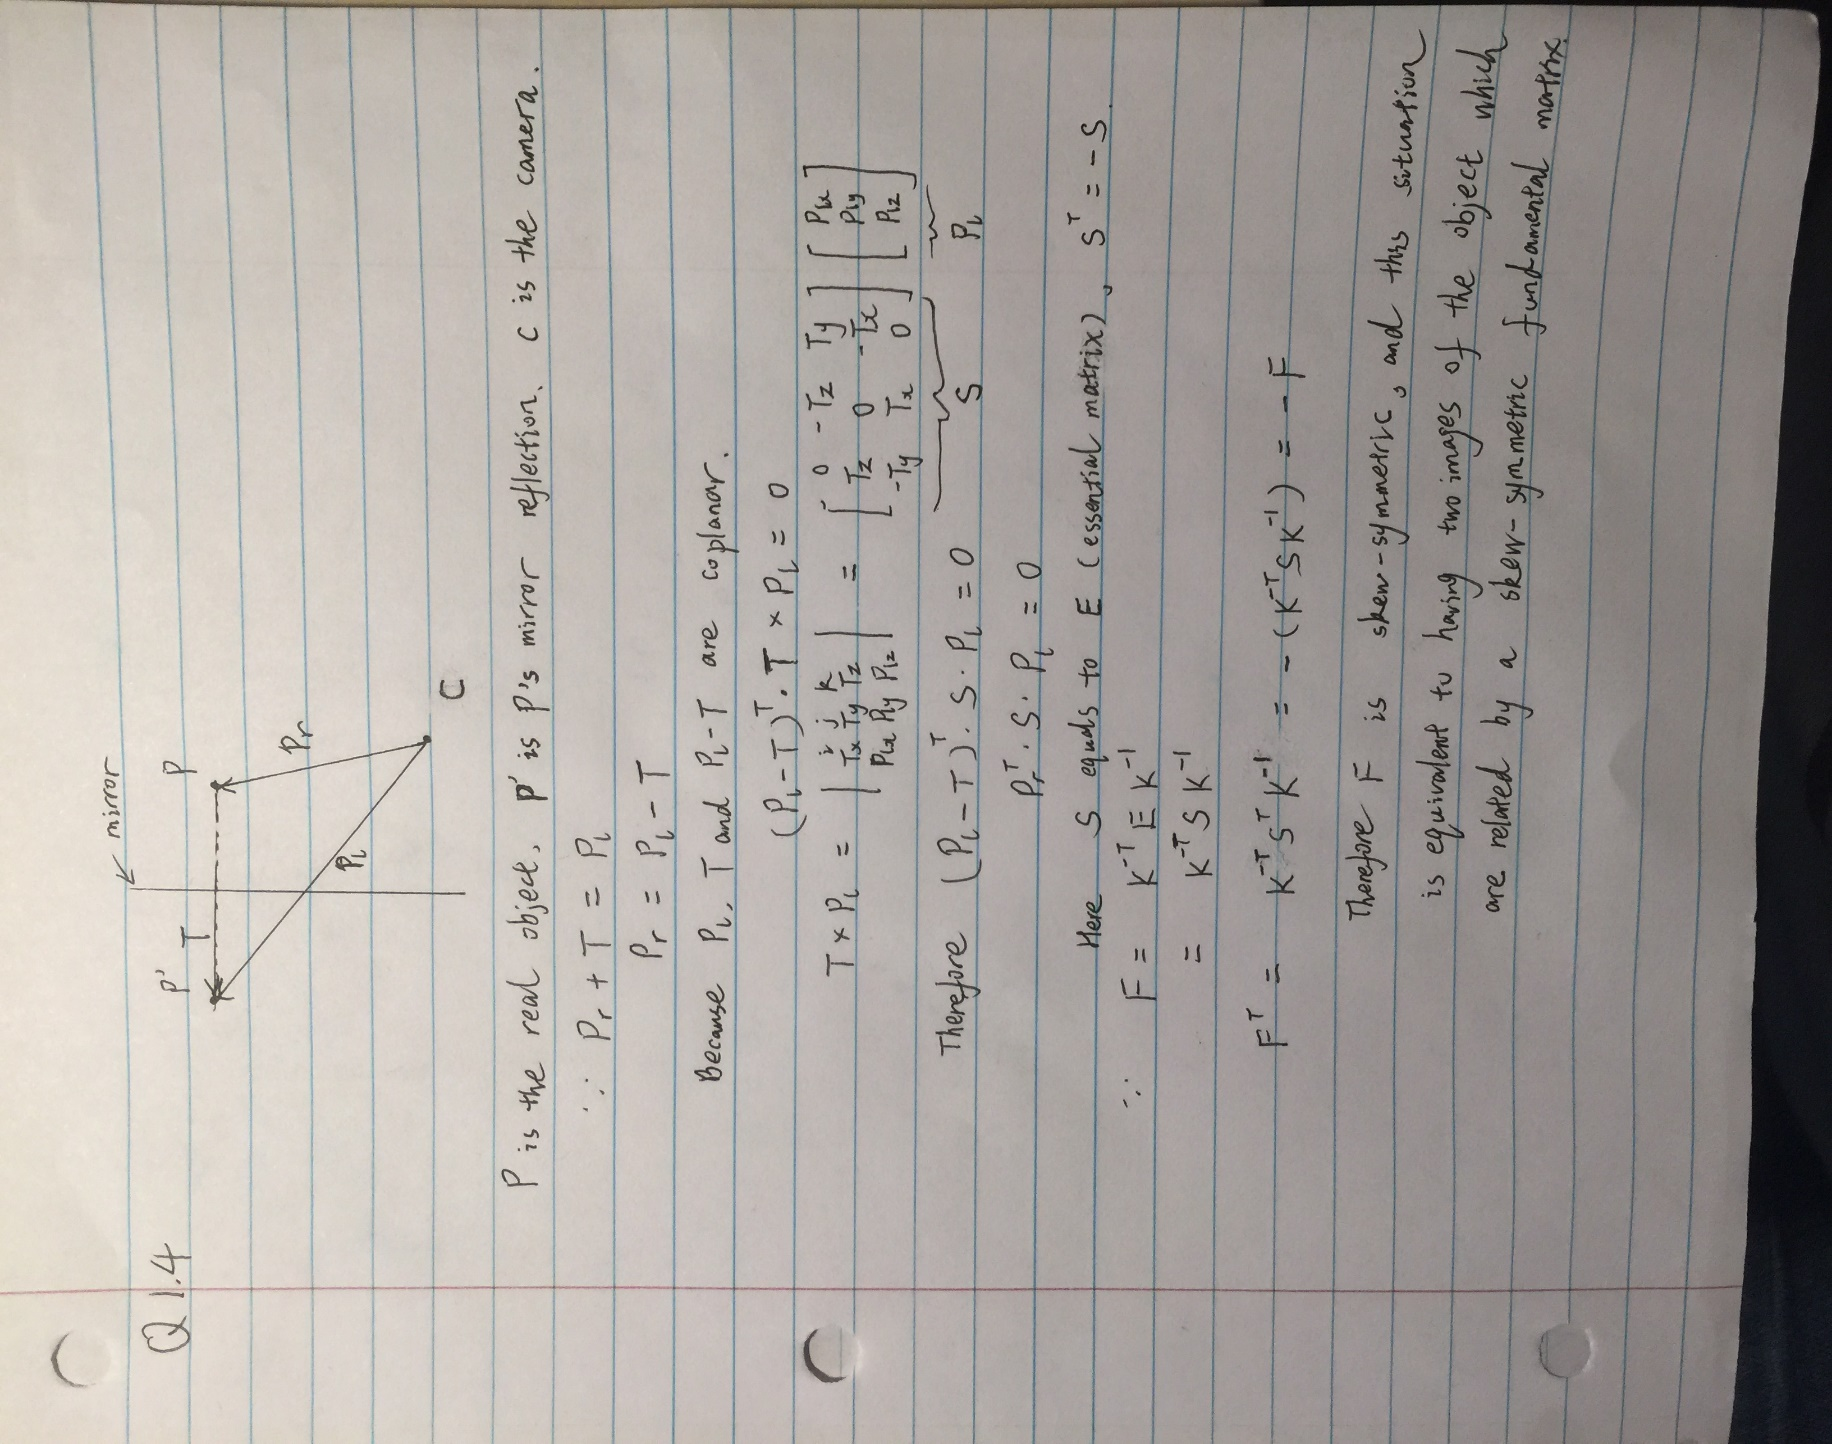 Q1.4
mirror
P' T P
Pl Pr
C
P is the real object, P' is P's mirror reflection. C is the camera.
∴ Pr + T = Pl
Pr = Pl - T
Because Pl, T and Pl-T are coplanar.
(Pl-T)ᵀ · T × Pl = 0
T × Pl = | i j k ; Tx Ty Tz ; Plx Ply Plz | = [ 0 -Tz Ty ; Tz 0 -Tx ; -Ty Tx 0 ] [ Plx ; Ply ; Plz ]
S Pl
Therefore (Pl-T)ᵀ · S · Pl = 0
Prᵀ · S · Pl = 0
Here S equals to E (essential matrix), Sᵀ = -S.
∴ F = K⁻ᵀ E K⁻¹
= K⁻ᵀ S K⁻¹
Fᵀ = K⁻ᵀ Sᵀ K⁻¹ = -(K⁻ᵀ S K⁻¹) = -F
Therefore F is skew-symmetric, and this situation
is equivalent to having two images of the object which
are related by a skew-symmetric fundamental matrix.